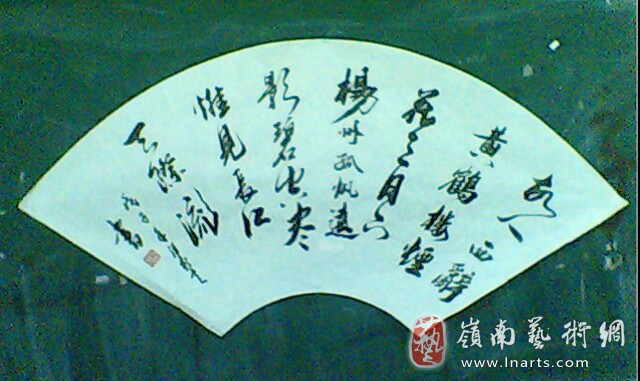 故人西辭
黃鶴樓煙
花三月下
楊州孤帆遠
影碧空尽
惟見長江
天際流
書
嶺南藝術網
www.lnarts.com